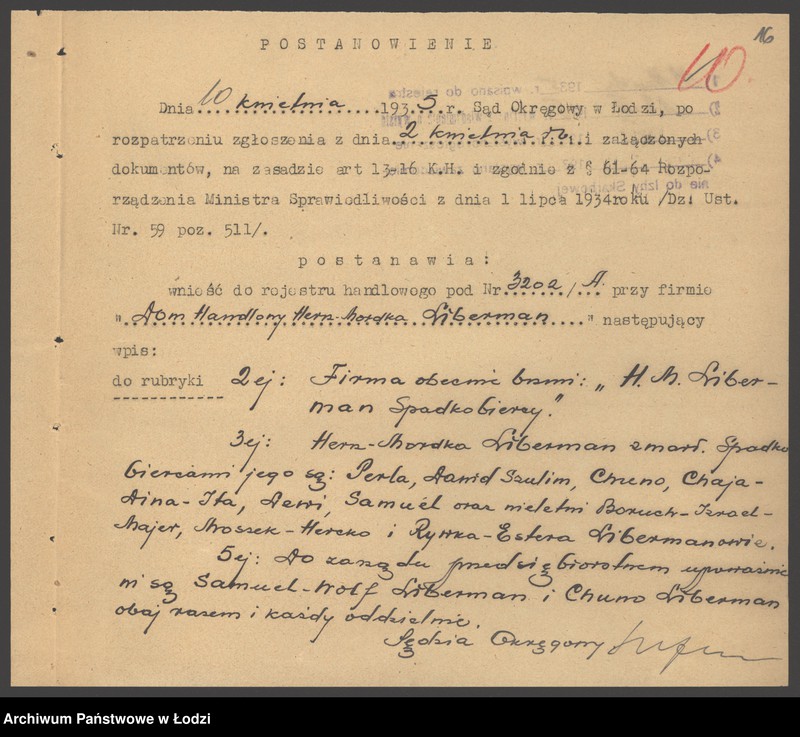 16
10.
POSTANOWIENIE
Dnia 10 kwietnia 1935 r. Sąd Okręgowy w Łodzi, po
rozpatrzeniu zgłoszenia z dnia 2 kwietnia rb. i załączonych
dokumentów, na zasadzie art 13, 16 K.H. i zgodnie z § 61-64 Rozpo-
rządzenia Ministra Sprawiedliwości z dnia 1 lipca 1934 roku /Dz. Ust.
Nr. 59 poz. 511/.
postanawia:
wnieść do rejestru handlowego pod Nr 3202/A. przy firmie
"Dom Handlowy Hersz-Mordka Liberman" następujący
wpis:
do rubryki 2ej: Firma obecnie brzmi: „H. M. Liber-
man Spadkobiercy."
3ej: Hersz-Mordka Liberman zmarł. Spadko
biercami jego są: Perla, Dawid Szulim, Chuno, Chaja-
Dina-Ita, Dewi, Samuel oraz nieletni Boruch-Izrael-
Majer, Moszek-Hercko i Rywka-Estera Libermanowie.
5ej: Do zarządu przedsiębiorstwem upoważnie
ni są Samuel-Wolf Liberman i Chuno Liberman
obaj razem i każdy oddzielnie.
Sędzia Okręgowy
Archiwum Państwowe w Łodzi